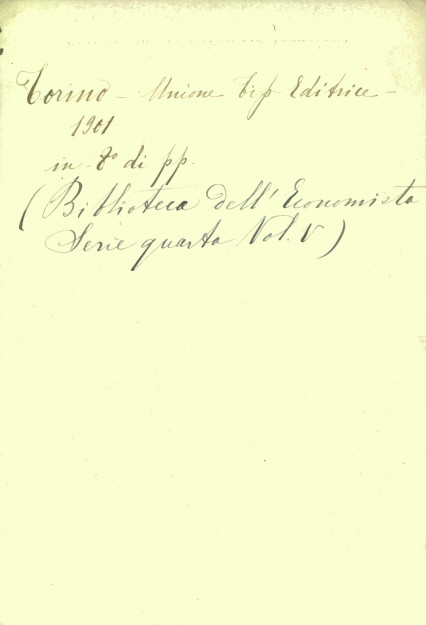 Torino – Unione Tip Editrice –
1901
in 8º di pp.
(Biblioteca dell' Economista
Serie quarta Vol. V)